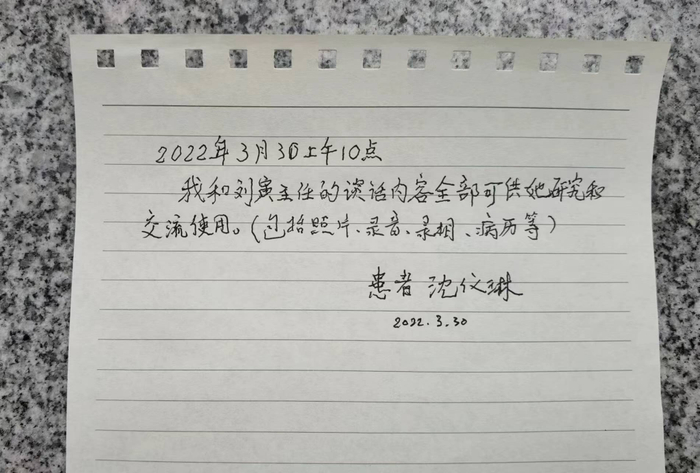 2022年3月30上午10点
我和刘寅主任的谈话内容全部可供她研究和
交流使用。(包括照片、录音、录相、病历等)
患者 沈纹琳
2022.3.30